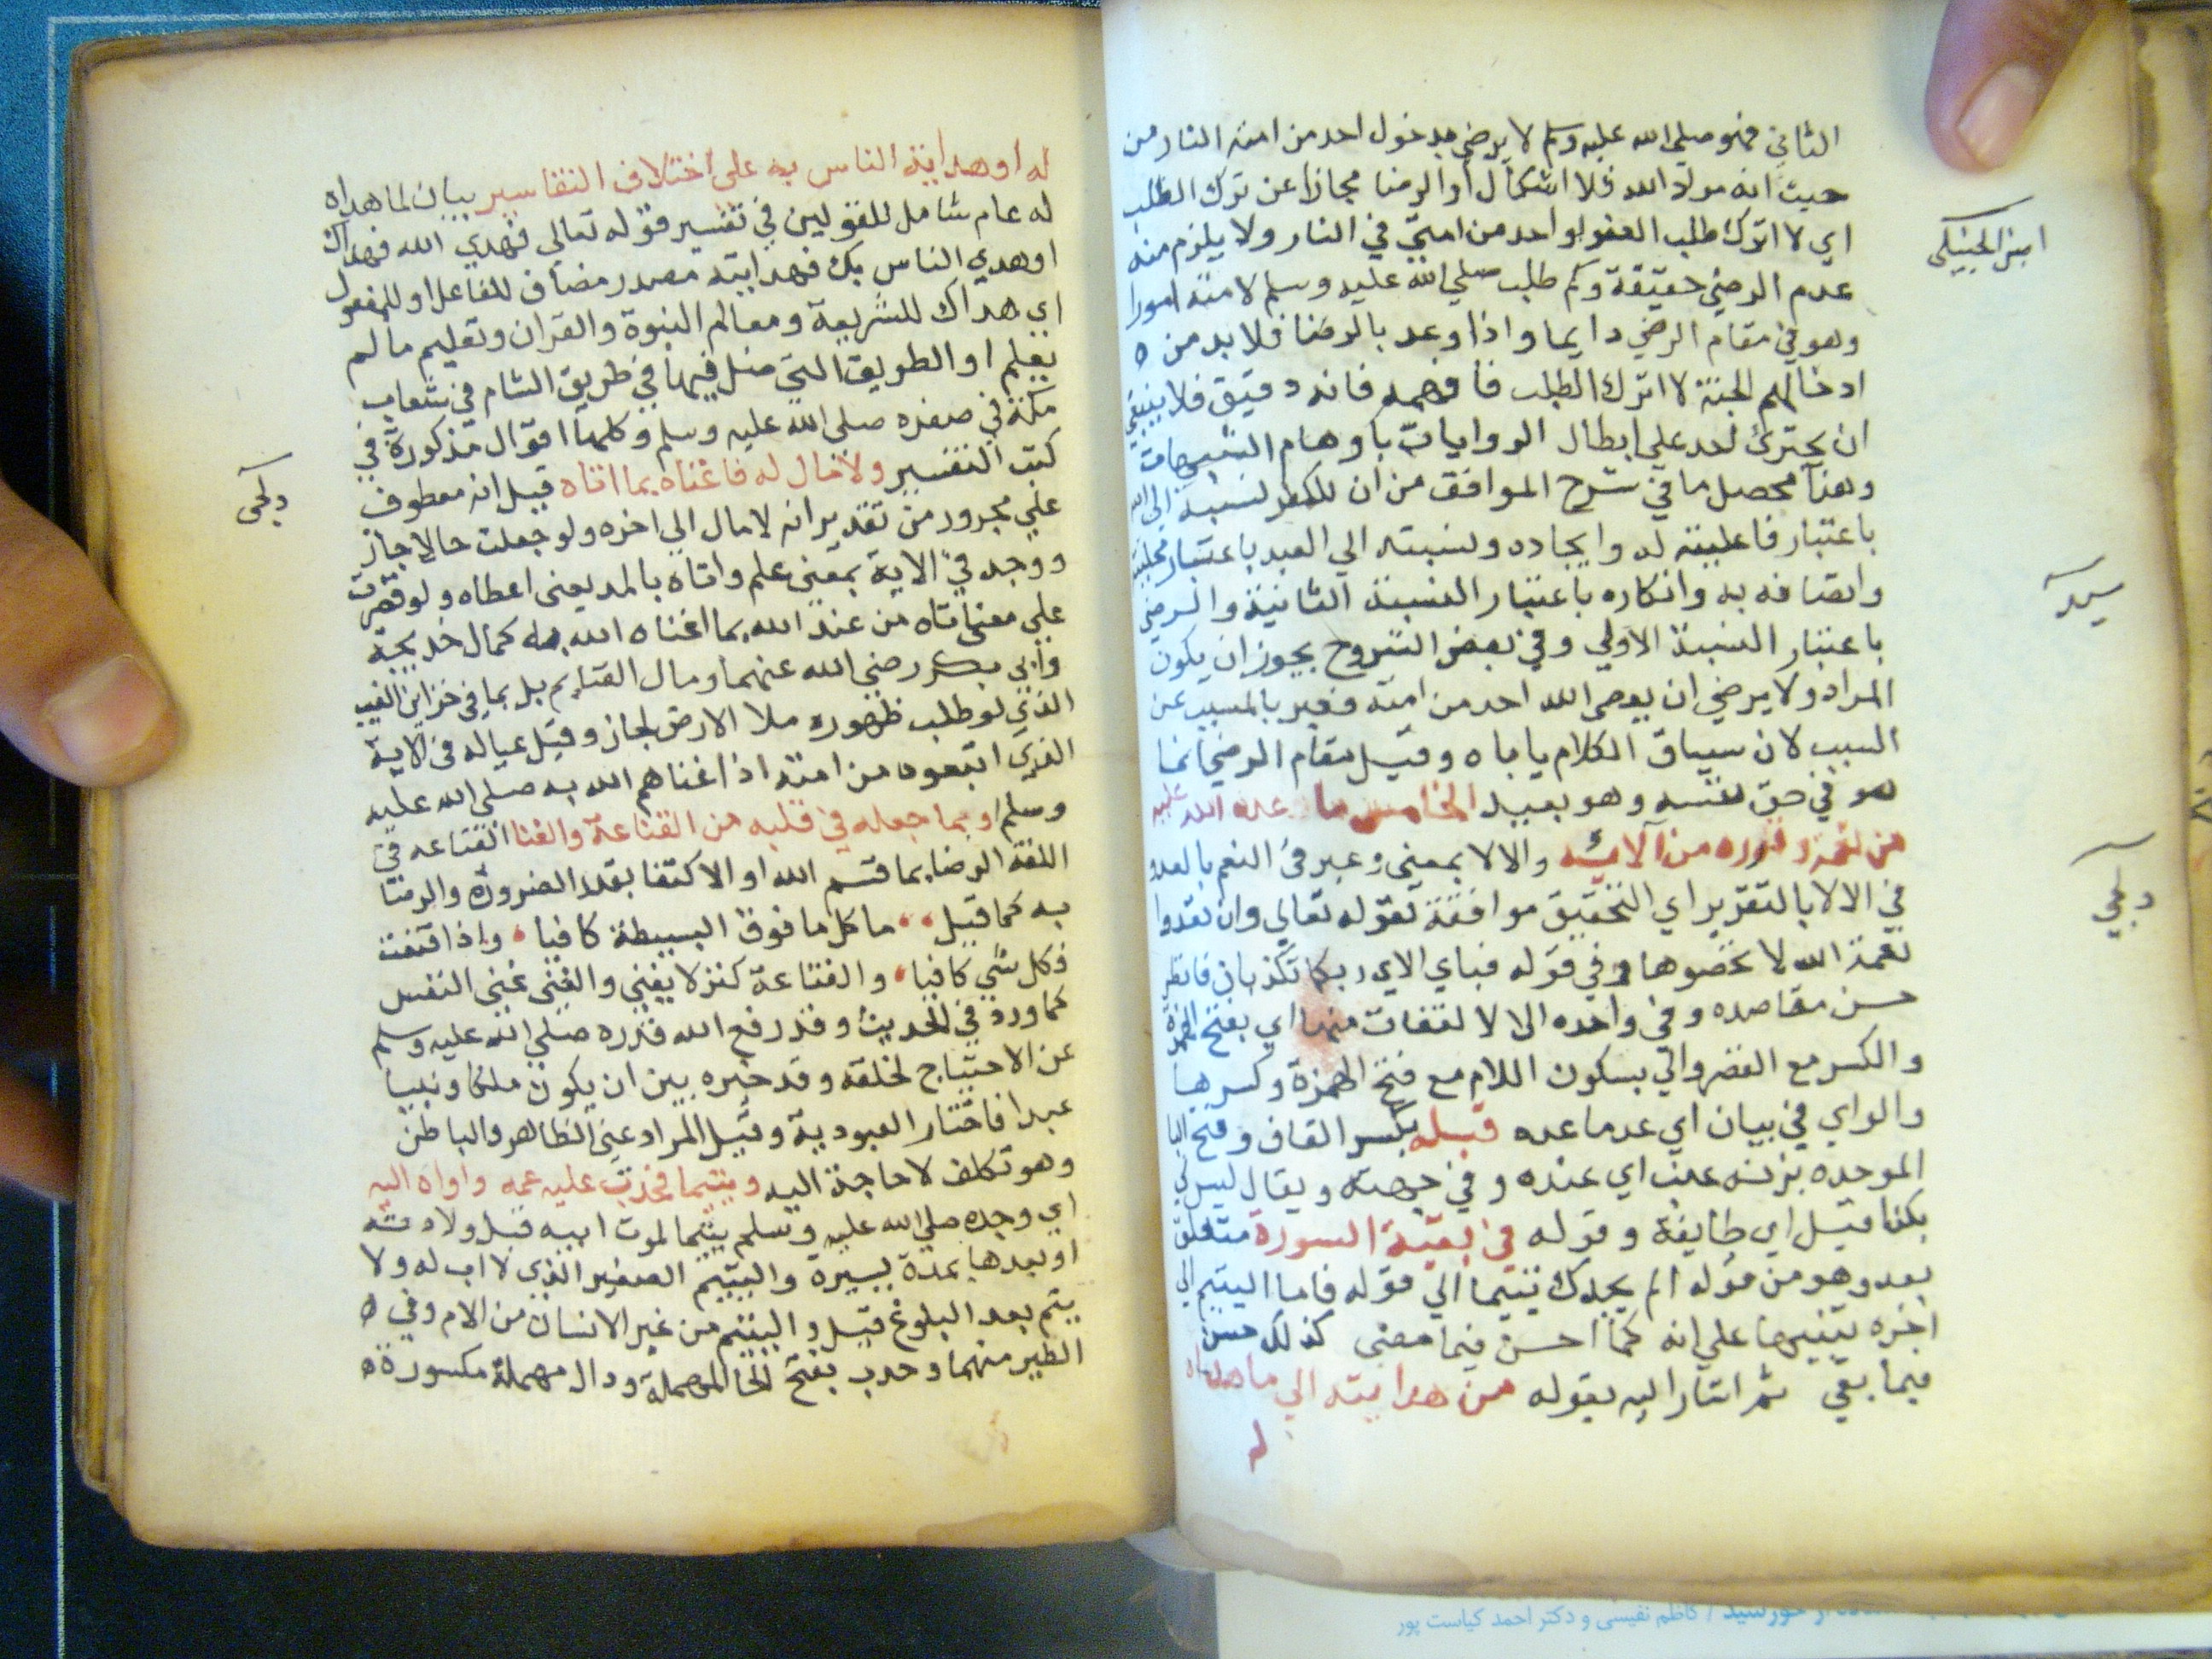 الثاني فهو صلى الله عليه وسلم لا يرضى بدخول احد من امته النار من
حيث انه مولاه الله فلا اشكال أو الرضا مجازا عن ترك الطلب
اي لا اترك طلب العفو لواحد من امتي في النار ولا يلزم منه
عدم الرضى حقيقة وكم طلب صلي الله عليه وسلم لامته امورا
وهو في مقام الرضي دايما واذا وعد بالرضا فلا بد من
ادخالهم الجنة لا اترك الطلب فافهمه فانه دقيق فلا ينبغي
ان يجترئ احد علي ابطال الروايات باوهام الشبهات
وهنا محصل ما في شرح المواقف من ان للكفر نسبة الى الله
باعتبار فاعليته له وايجاده ونسبته الي العبد باعتبار محليته
واتصافه به وانكاره باعتبار النسبة الثانية والرضي
باعتبار النسبة الاولي وفي بعض الشروح يجوز ان يكون
المراد ولا يرضي ان يعصى الله احد من امته فعبر بالمسبب عن
السبب لان سياق الكلام ياباه وقيل مقام الرضي انما
هو في حق نفسه وهو بعيد الخامس ما عده الله عليه
من نعمه وقرره من آلائه والالا بمعني وعبر في النعم بالعد و
في الالا بالتقرير اي التحقيق موافقة لقوله تعالي وان تعدوا
نعمة الله لا تحصوها وفي قوله فباي الاي ربكما تكذبان فانظر
حسن مقاصده وفي واحده الالا لغات منها اي بفتح الهمزة
والكسر مع القصر والي بسكون اللام مع فتح الهمزة وكسرها
والواي في بيان اي عد ما عده قبله بكسر القاف وفتح البا
الموحده بزنه عنب اي عنده وفي جهته ويقال ليس لي
بكذا قبل اي طايفة وقوله في بقية السورة متعلق
بعد وهو من قوله الم يجدك يتيما الي قوله فاما اليتيم الي
اخره تنبيها علي انه كما احسن فيما مضى كذلك حسن
فيما بقي ثم اشار اليه بقوله من هدايته الي ما هداه
له
ابن الحنبلي
سيد
دلجي
له او هداية الناس به علي اختلاف التفاسير بيان لما هداه
له عام شامل للقولين في تفسير قوله تعالي فهدي الله فهداك
او هدي الناس بك فهدايته مصدر مضاف للفاعل او للمفعول
اي هداك للشريعة ومعالم النبوة والقران وتعليم ما لم
يعلم او الطريق التي ضل فيها في طريق الشام في شعاب
مكة في صغره صلى الله عليه وسلم وكلها اقوال مذكورة في
كتب التفسير ولا مال له فاغناه بما اتاه قيل انه معطوف
علي مجرور من تقدير انه لا مال الي اخره ولو جعلت حالا جاز
ووجد في الاية بمعني علم واتاه بالمد يعني اعطاه ولو قصرت
علي معني اتاه من عند الله بما اغناه الله به كمال خديجة
وأبي بكر رضي الله عنهما ومال القتايم بل بما في خزاين الغيب
الذي لو طلب ظهوره ملا الارض لجاز وقيل عياله في الاية
الذي اتبعوه من امته اذ اغناهم الله به صلى الله عليه
وسلم او بما جعله في قلبه من القناعة والغنا القناعه في
اللغة الرضا بما قسم الله او الاكتفا بقدر الضرورة والرضا
به كما قيل ما كل ما فوق البسيطة كافيا واذا قنعت
فكل شي كافيا والقناعة كنز لا يفني والغني غني النفس
كما ورد في الحديث وقد رفع الله قدره صلي الله عليه وسلم
عن الاحتياج لخلقه وقد خيره بين ان يكون ملكا ونبيا
عبدا فاختار العبودية وقيل المراد غني الظاهر والباطن
وهو تكلف لا حاجة اليه ويتيما فحدب عليه عمه واواه اليه
اي وجده صلي الله عليه وسلم يتيما لموت ابيه قبل ولادته
او بعدها بمدة يسيرة واليتيم الصغير الذي لا اب له ولا
يتم بعد البلوغ قيل و اليتيم من غير الانسان من الام وفي
الطير منهما وحدب بفتح الحا المهملة ودال مهملة مكسورة
دلجى
کاظم نفیسی و دکتر احمد کیاست پور